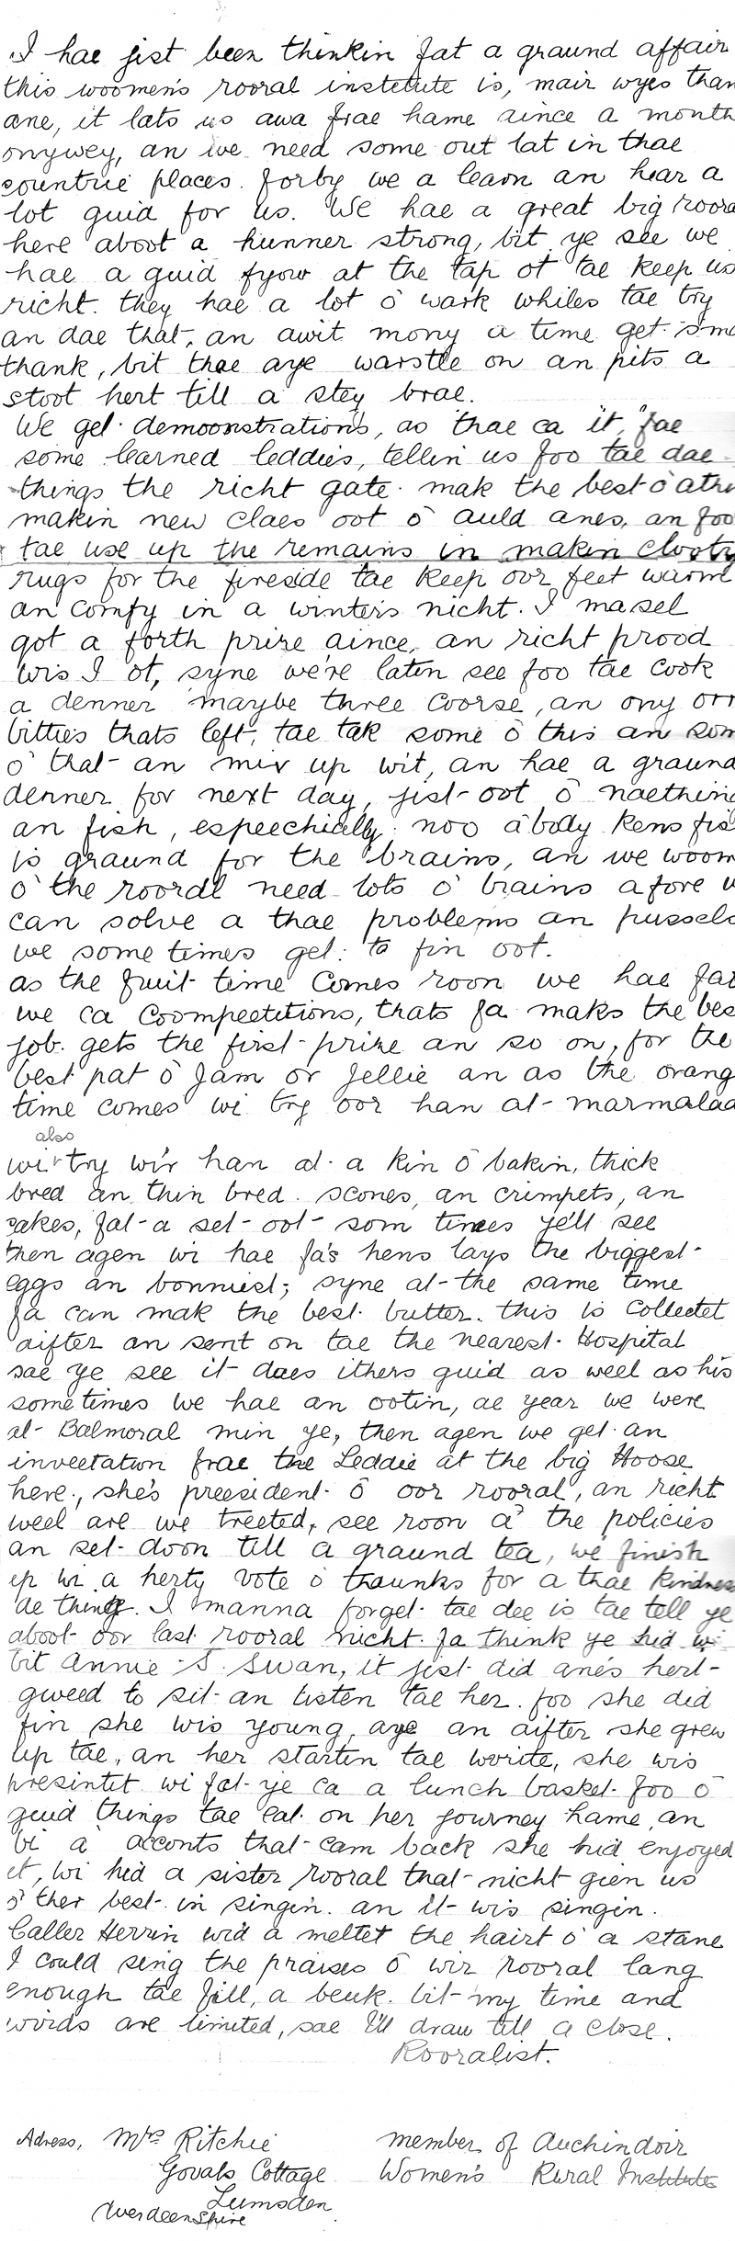 I hae jist been thinkin fat a graund affair
this woomen's rooral institute is, mair wyes than
ane, it lats us awa frae hame aince a month
onywey, an we need some out lat in thae
countrie places. forby we a learn an hear a
lot guid for us. We hae a great big roora
here aboot a hunner strong, bit ye see we
hae a guid fyow at the tap ot tae keep us
richt. they hae a lot o wark whiles tae try
an dae that, an awit mony a time get sma
thank, bit thae aye warstle on an pits a
stoot hert till a stey brae.
We get demoonstrations, as thae ca it, fae
some learned leddies, tellin us foo tae dae
things the richt gate. mak the best o athi
makin new claes oot o auld anes, an foo
tae use up the remains in makin clooty
rugs for the fireside tae keep our feet warm
an comfy in a winters nicht. I masel
got a forth prize aince, an richt prood
wis I ot, syne we're laten see foo tae cook
a denner maybe three coorse, an ony orr
bitties thats left, tae tak some o this an som
o that an mix up wit, an hae a graund
denner for next day, jist oot o naething
an fish, espeechially. noo abody kens fis
is graund for the brains, an we woom
o the rooral need lots o brains afore w
can solve a thae problems an pussels
we sometimes get to fin oot.
as the fruit time comes roon we hae fat
we ca coompeetitions, thats fa maks the bes
job. gets the first prize an so on, for the
best pat o Jam or Jellie an as the orang
time comes wi try oor han at marmalad
also
wi try wir han at a kin o bakin, thick
bred an thin bred. scones, an crimpets, an
cakes, fat a set oot som times ye'll see
then agen wi hae fa's hens lays the biggest
eggs an bonniest; syne at the same time
fa can mak the best butter. this is collectet
aifter an sent on tae the nearest Hospital
sae ye see it does ithers guid as weel as his
sometimes we hae an ootin, ae year we were
at Balmoral min ye, then agen we get an
inveetation frae the Leddie at the big Hoose
here, she's preesident o oor rooral, an richt
weel are we treeted, see roon a' the policies
an set doon till a graund tea, we finish
up wi a herty vote o thaunks for a thae kindness
ae thing I manna forget tae dee is tae tell ye
aboot oor last rooral nicht. fa think ye hid wi
bit Annie S. Swan, it jist did ane's hert
gweed to sit an listen tae her. foo she did
fin she wis young, aye an aifter she grew
up tae, an her startin tae write, she wis
presintit wi fat ye ca a lunch basket foo o
guid things tae eat on her journey hame, an
bi a acconts that cam back she hid enjoyed
it, wi hid a sister rooral that nicht gien us
o ther best in singin. an it wis singin.
Caller Herrin wid a meltet the hairt o a stane
I could sing the praises o wir rooral lang
enough tae fill a beuk. bit my time and
words are limited, sae I'll draw till a close.
Rooralist.
Adress, Mrs Ritchie member of Auchindoir
Govals Cottage Women's Rural Institute
Lumsden
Aberdeenshire